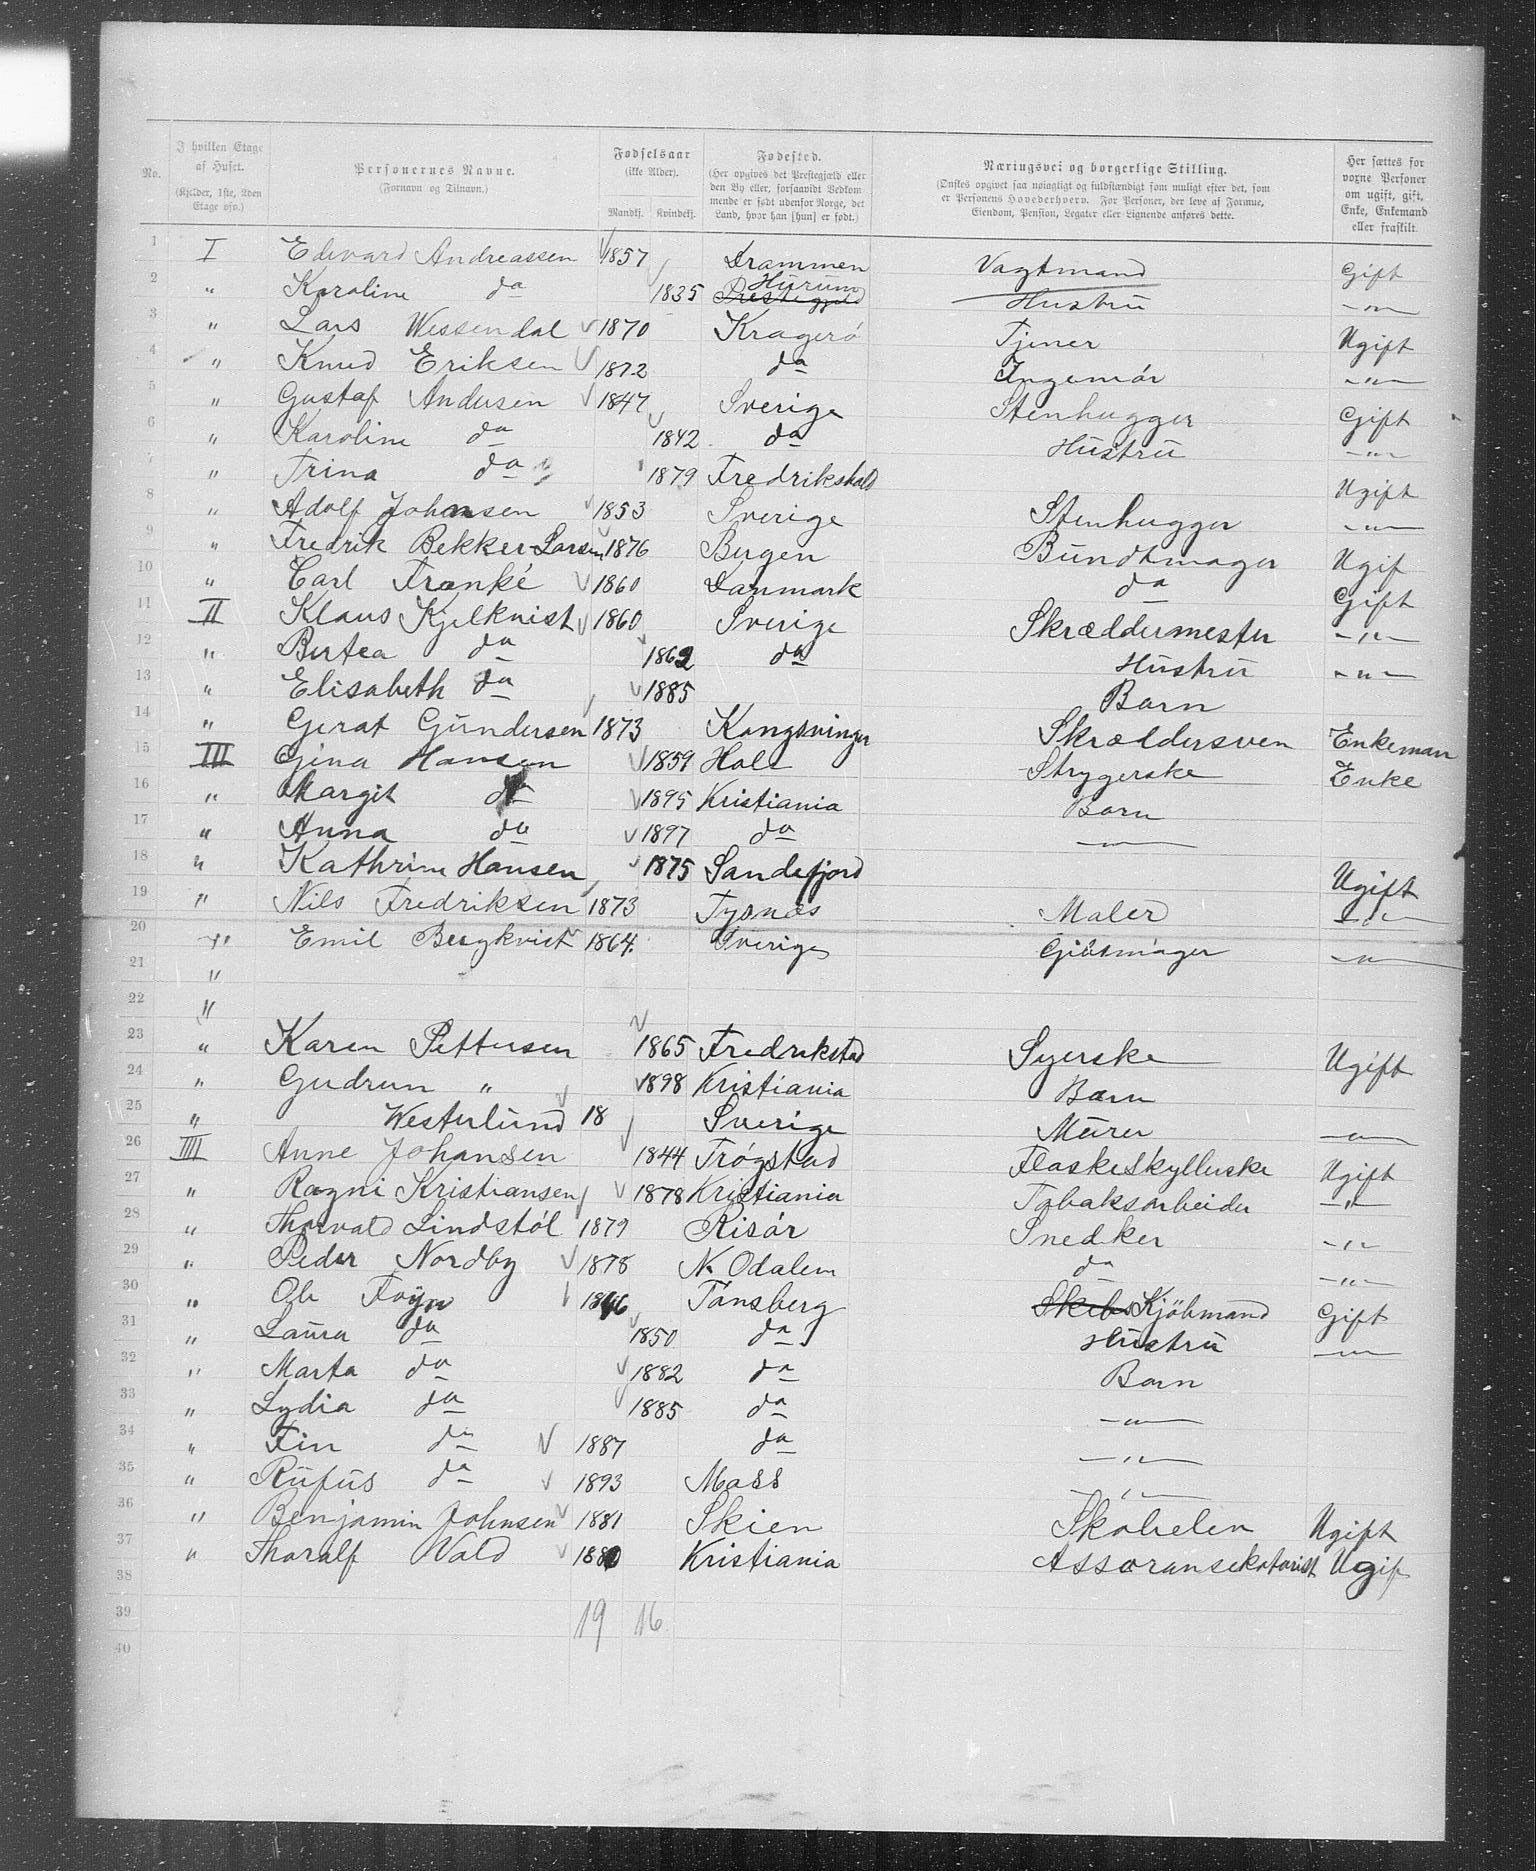 No. | I hvilken Etage af Huset. (Kjelder, 1ste, 2den Etage osv.) | Personernes Navne. (Fornavn og Tilnavn.) | Fødselsaar (ikke Alder). Mandkj. Kvindekj. | Fødested. (Her opgives det Prestegjæld eller den By eller, forsaavidt Vedkommende er født udenfor Norge, det Land, hvor han [hun] er født.) | Næringsvei og borgerlige Stilling. (Ønskes opgivet saa nøiagtigt og fuldstændigt som muligt efter det, som er Personens Hovederhverv. For Personer, der leve af Formue, Eiendom, Pension, Legater eller Lignende anføres dette.) | Her sættes for voxne Personer om ugift, gift, Enke, Enkemand eller fraskilt.
1 I Edvard Andreassen 1857 Drammen Vagtmand Gift
2 " Karoline do 1835 Hurum Prestegjæld Hustru -"-
3 " Lars Wessendal 1870 Kragerö Tjener Ugift
4 " Knud Eriksen 1872 do Ingeniör -"-
5 " Gustaf Andersen 1847 Sverige Stenhugger Gift
6 " Karoline do 1842 do Hustru -"-
7 " Trina do 1879 Fredrikshald Ugift
8 " Adolf Johnsen 1853 Sverige Stenhugger -"-
9 " Fredrik Bekker-Larsen 1876 Bergen Bundtmager Ugif
10 " Carl Franké 1860 Danmark do Gift
11 II Klaus Kjelkvist 1860 Sverige Skræddermester -"-
12 " Bertea do 1862 do Hustru -"-
13 " Elisabeth do 1885 Barn
14 " Gerat Gundersen 1873 Kongsvinger Skræddersven Enkeman
15 III Gina Hansen 1859 Hole Strygerske Enke
16 " Margit do 1895 Kristiania Barn
17 " Anna do 1897 do -"-
18 " Kathrine Hansen 1875 Sandefjord Ugift
19 " Nils Fredriksen 1873 Tysnæs Maler -"-
20 " Emil Bergkvist 1864. Sverige Gibsmager -"-
21 "
22 "
23 " Karen Pettersen 1865 Fredrikstad Syerske Ugift
24 " Gudrun " 1898 Kristiania Barn
25 " Westerlund 18 Sverige Murer -"-
26 IIII Anne Johansen 1844 Trögstad Flaskeskyllerske Ugift
27 " Ragni Kristiansen 1878 Kristiania Tobaksarbeider -"-
28 " Thorvald Lindstöl 1879 Risör Snedker -"-
29 " Peder Nordby 1878 N. Odalen do -"-
30 " Ole Föyn 1846 Tönsberg Skibs Kjöbmand Gift
31 " Laura do 1850 do Hustru -"-
32 " Marta do 1882 do Barn
33 " Lydia do 1885 do -"-
34 " Fin do 1887 do -"-
35 " Rufus do 1893 Moss -"-
36 " Benjamin Johnsen 1881 Skien Skoleelev Ugift
37 " Thoralf Wold 1880 Kristiania Assoransekotorist Ugif
38
39 19 16
40